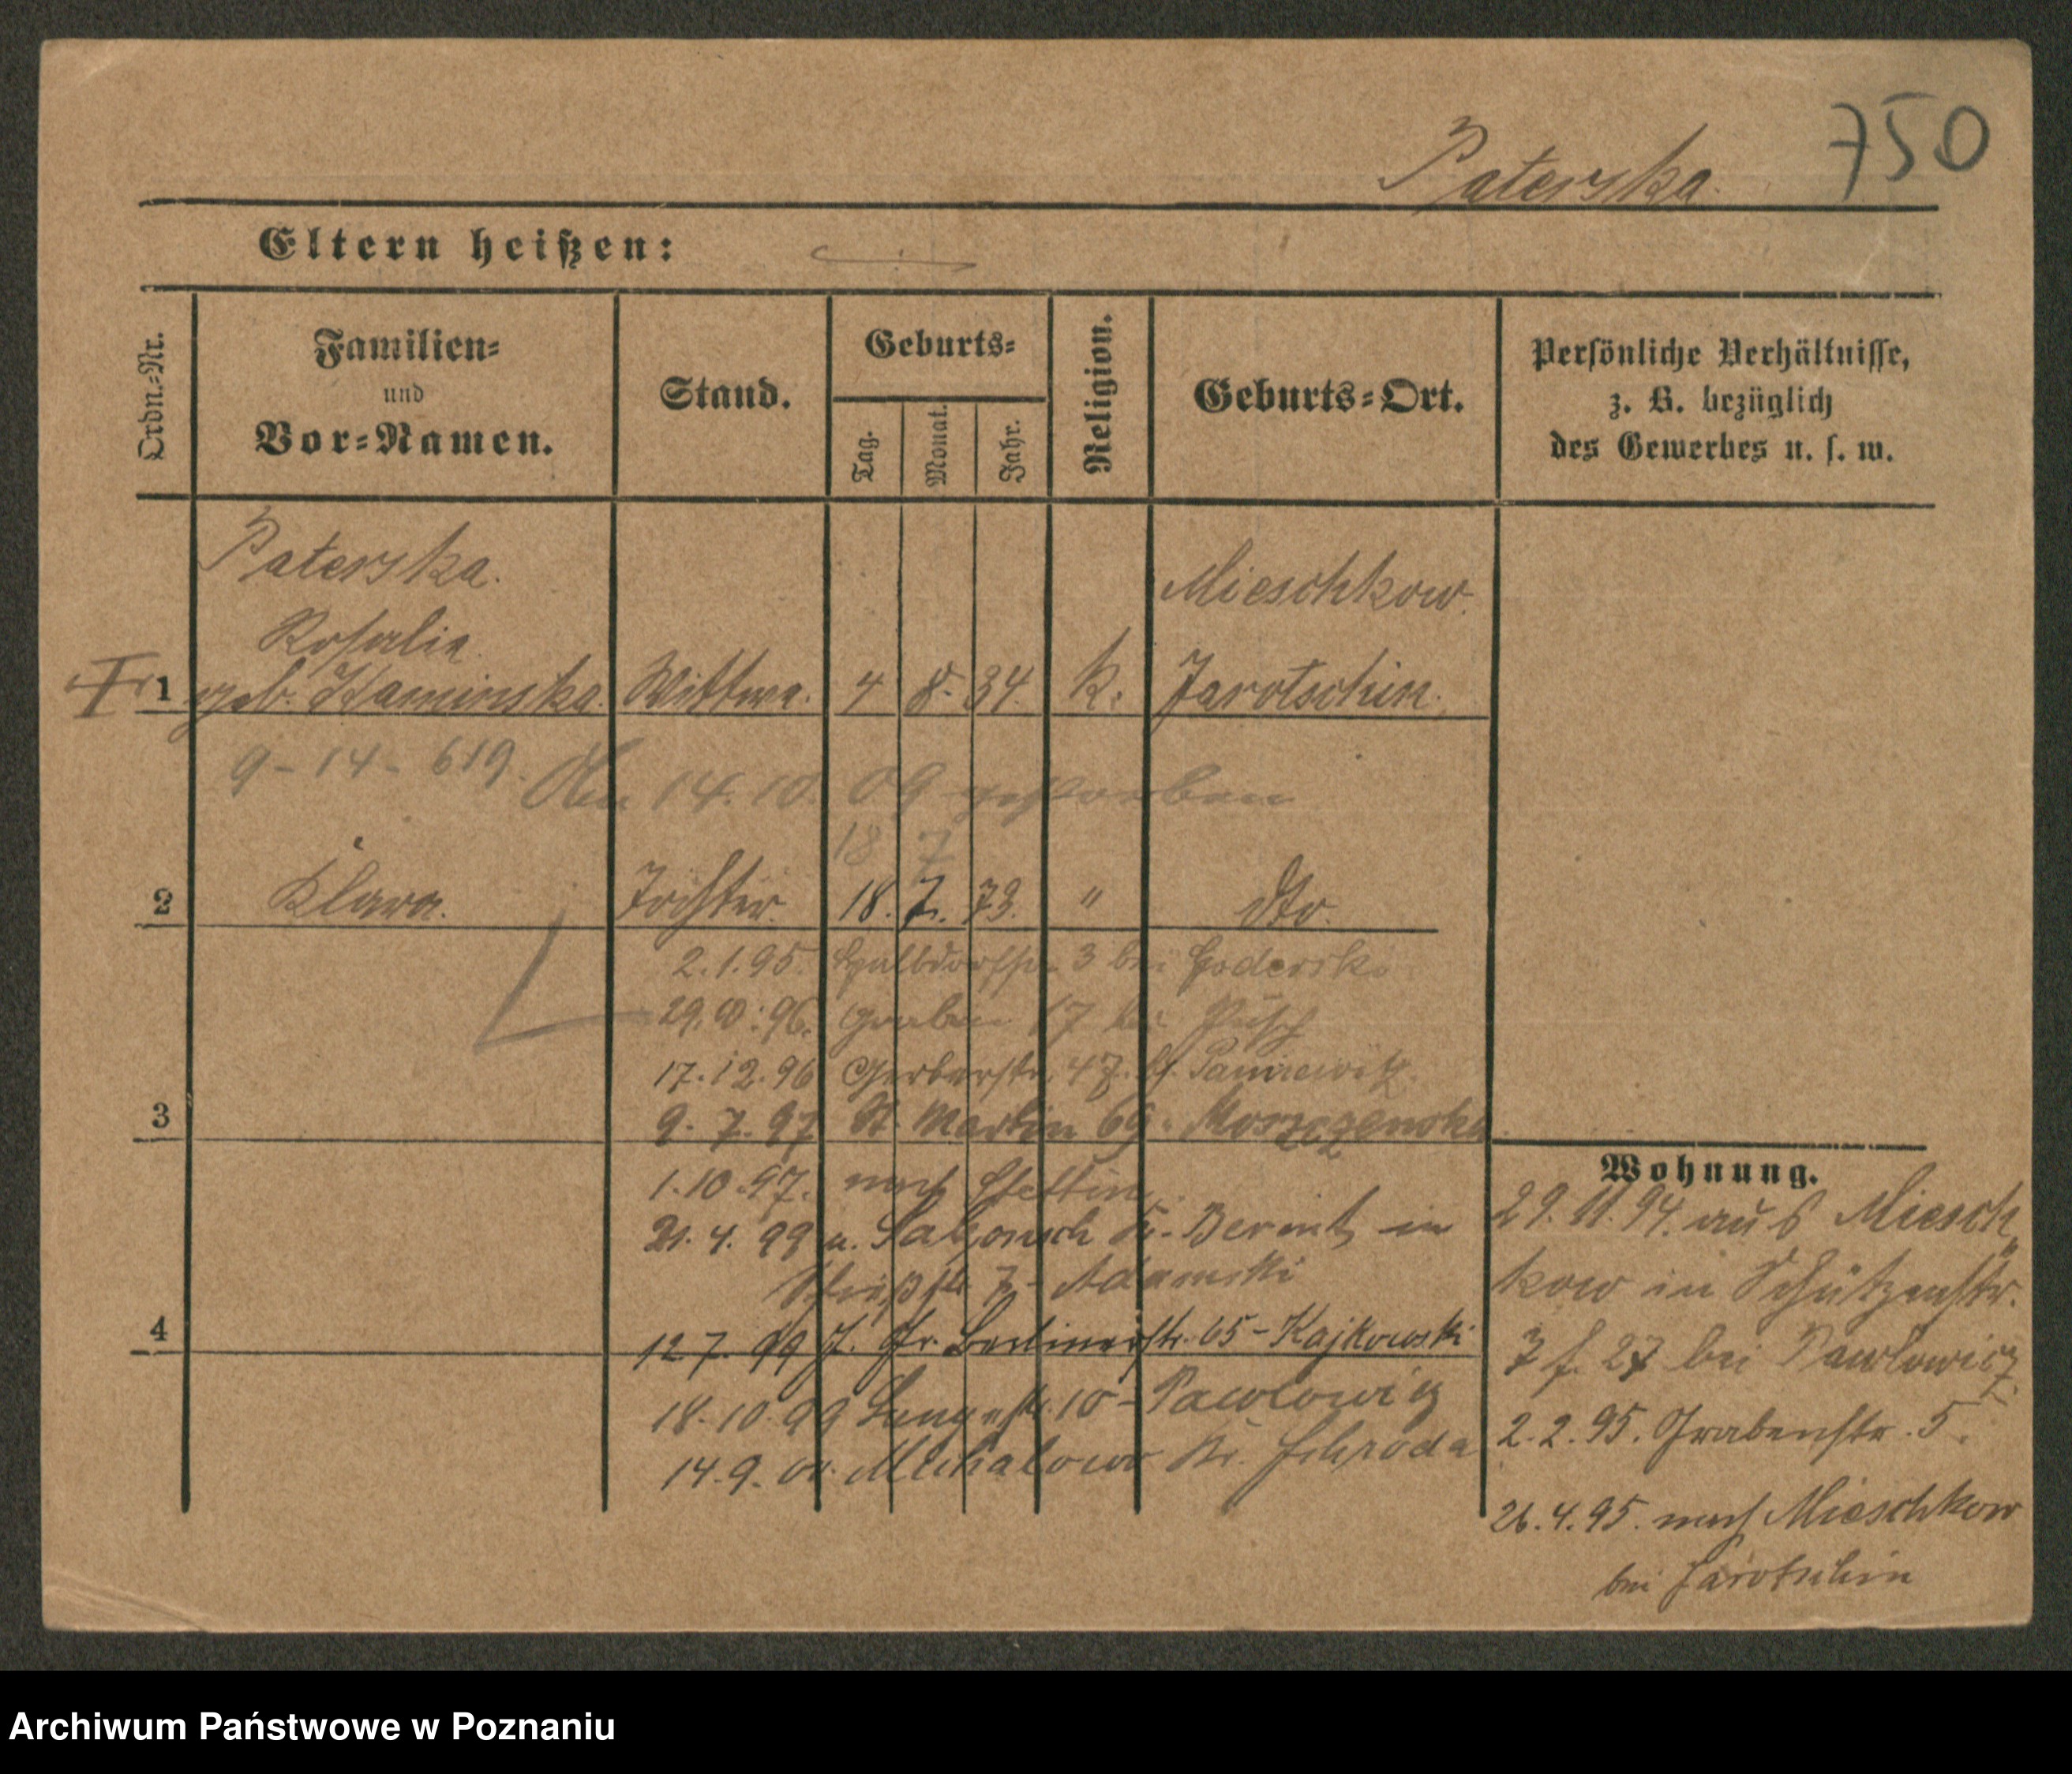 750
Paterska.
Eltern heißen:
Ordn.-Nr.
Familien-
und
Vor-Namen.
Stand.
Geburts-
Tag.
Monat.
Jahr.
Religion.
Geburts-Ort.
Persönliche Verhältnisse,
z. B. bezüglich
des Gewerbes u. s. w.
Paterska.
Rosalie
1 geb. Kaminska. Wittwe. 4 8. 34. k. Mieschkow. Jarotschin.
9-14-619. Am 14.10.09 gestorben
18 7
2 Klara. Tochter. 18. 7. 73. " dto.
2.1.95. Halbdorfstr. 3 bei
29.10.96. Graben 17 bei
17.12.96 Gerberstr. 47. bei
3
9.7.97 St. Martin 69. Moszczenska
1.10.97. nach Stettin
21.4.99 Kr. Berent in
7 - Adamski
4
12.7.99 Gr. Berlinerstr. 65 - Kajkowski
18.10.99 Langestr. 10 - Pawlowicz
14.9. Michalowo Kr. Schroda
Wohnung.
29.11.94. aus Miesch
kow in Schützenstr.
27 bei Pawlowicz
2.2.95. Grabenstr. 5.
26.4.95. nach Mieschkow
bei Jarotschin
Archiwum Państwowe w Poznaniu